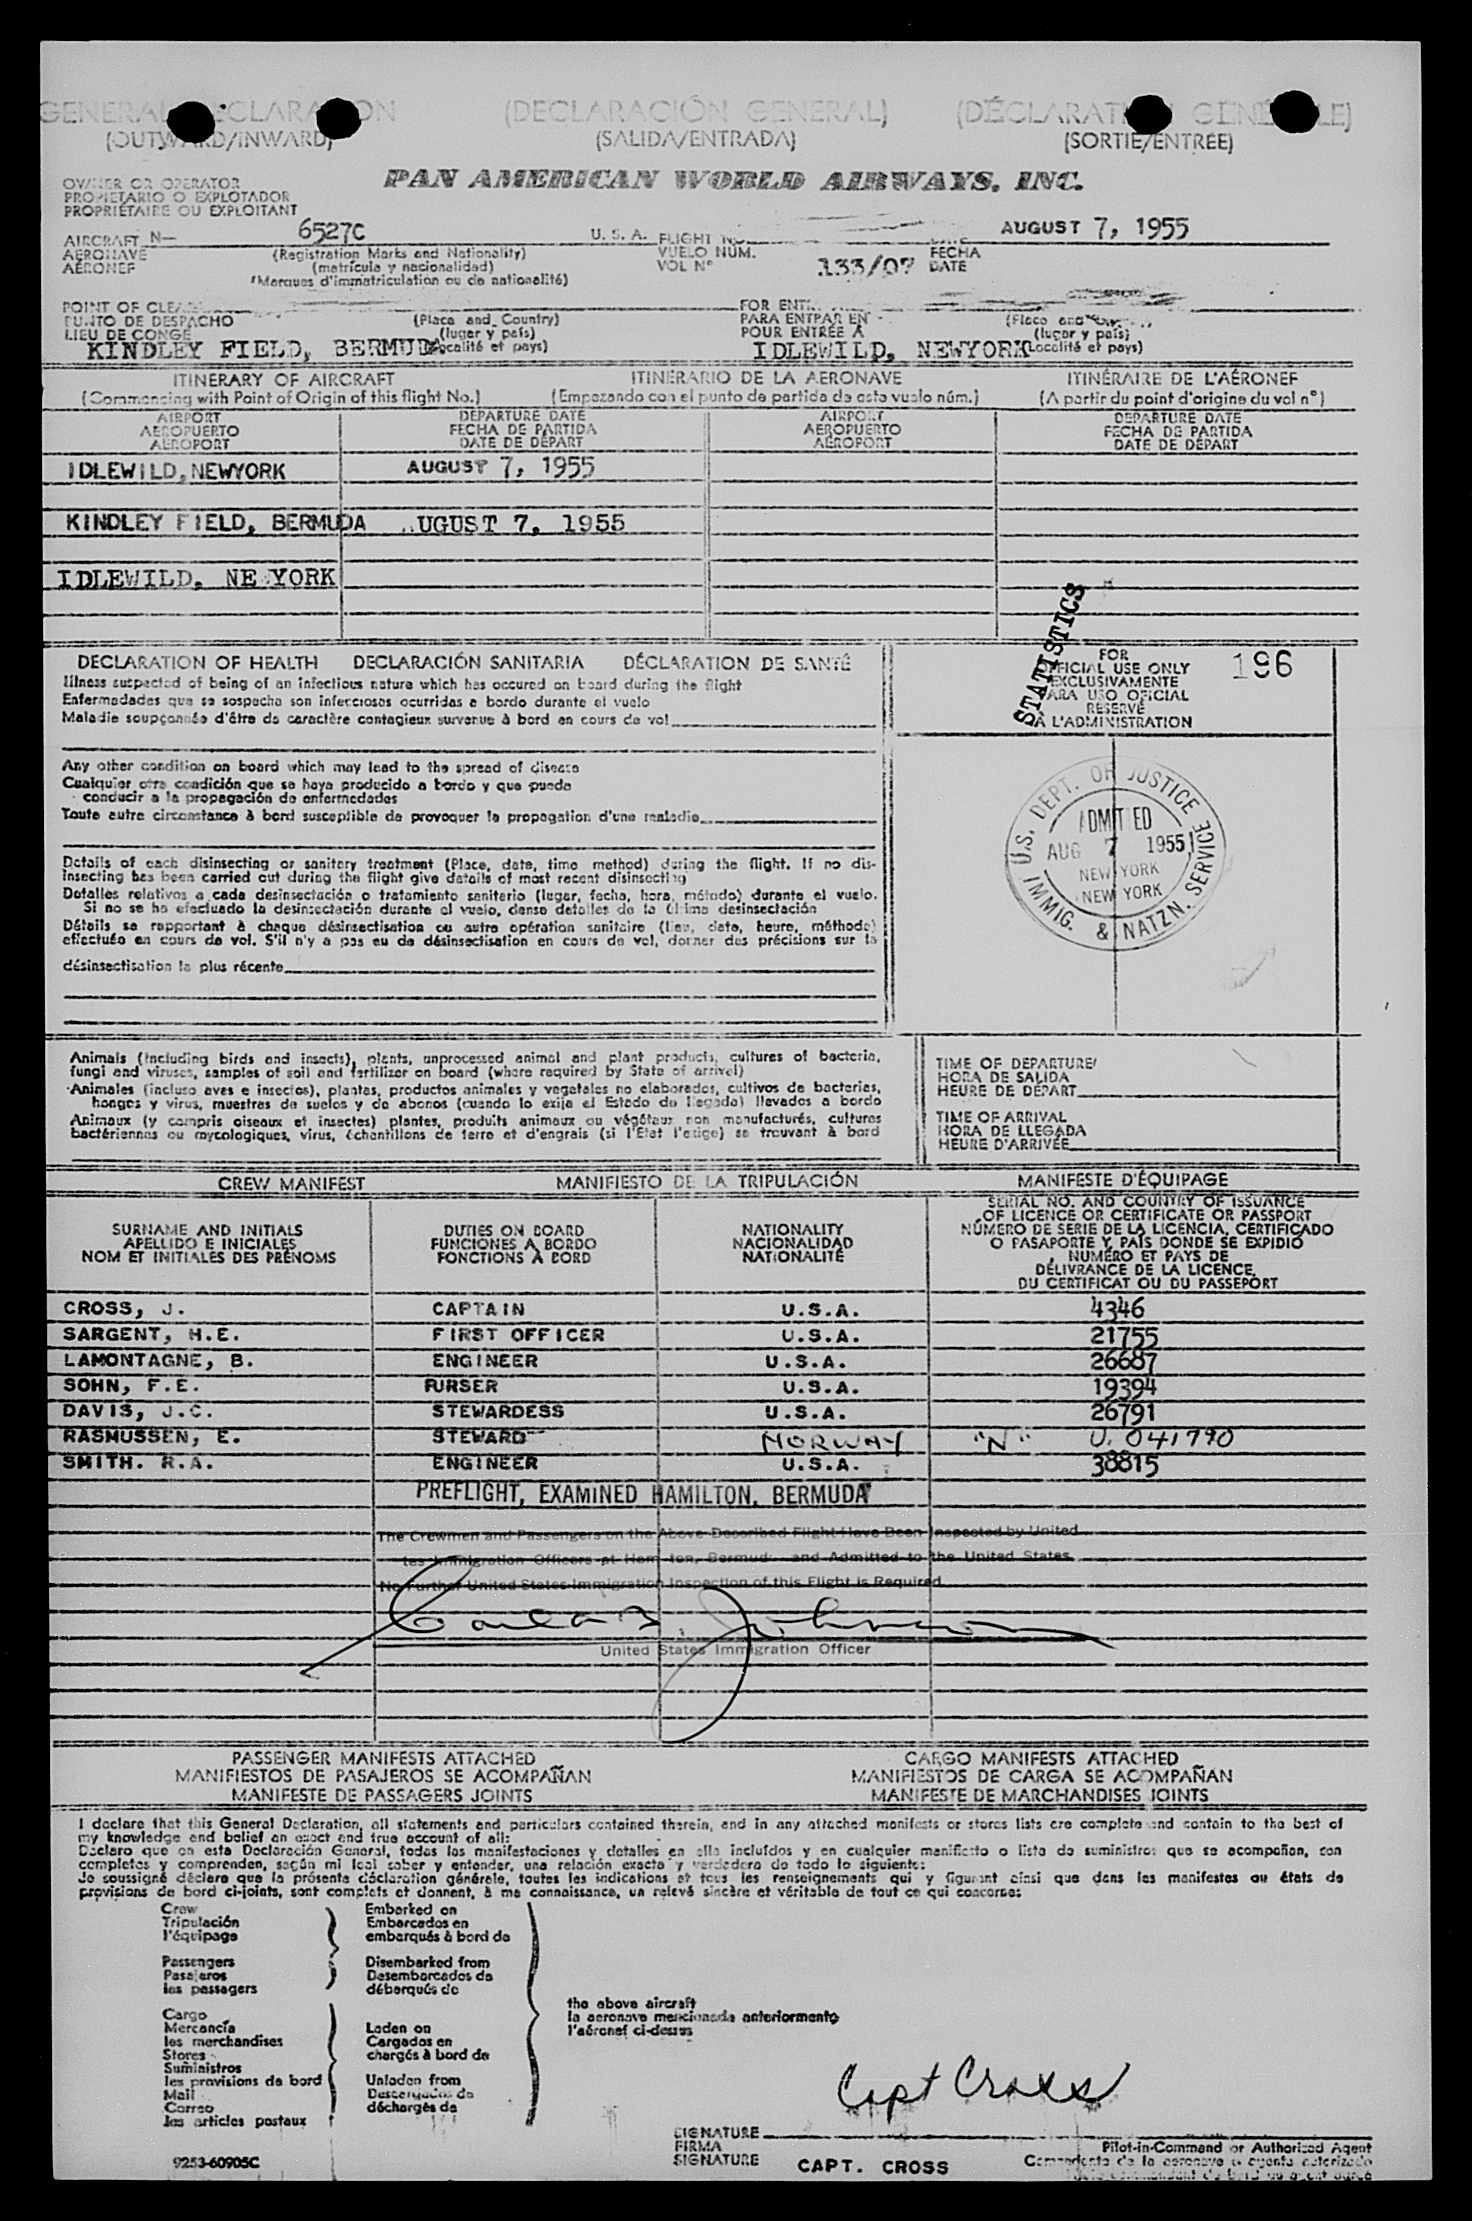 (DECLARACIÓN GENERAL)
(OUTWARD/INWARD) (SALIDA/ENTRADA) (SORTIE/ENTRÉE)
PAN AMERICAN WORLD AIRWAYS, INC.
OWNER OR OPERATOR
PROPIETARIO O EXPLOTADOR
PROPRIÉTAIRE OU EXPLOITANT
AIRCRAFT N— 6527C U. S. A. FLIGHT AUGUST 7, 1955
AERONAVE (Registration Marks and Nationality) VUELO NÚM. FECHA
AÉRONEF (matrícula y nacionalidad) VOL Nº 133/07 DATE
(Marques d'immatriculation ou de nationalité)
POINT OF FOR
PUNTO DE DESPACHO (Place and Country) PARA ENTRAR EN
LIEU DE CONGÉ (lugar y país) POUR ENTRÉE À (lugar y país)
KINDLEY FIELD, BERMUDA IDLEWILD, NEWYORK (Localité et pays)
ITINERARY OF AIRCRAFT ITINERARIO DE LA AERONAVE ITINÉRAIRE DE L'AÉRONEF
(Commencing with Point of Origin of this flight No.) (Empezando con el punto de partida de este vuelo núm.) (A partir du point d'origine du vol nº)
AIRPORT DEPARTURE DATE AIRPORT DEPARTURE DATE
AEROPUERTO FECHA DE PARTIDA AEROPUERTO FECHA DE PARTIDA
AÉROPORT DATE DE DÉPART AÉROPORT DATE DE DÉPART
IDLEWILD, NEWYORK AUGUST 7, 1955
KINDLEY FIELD, BERMUDA UGUST 7, 1955
IDLEWILD, NE YORK
STATISTICS
DECLARATION OF HEALTH DECLARACIÓN SANITARIA DÉCLARATION DE SANTÉ
Illness suspected of being of an infectious nature which has occured on board during the flight
Enfermedades que se sospecha son infecciosas ocurridas a bordo durante el vuelo
Maladie soupçonnée d'être de caractère contagieux survenue à bord en cours de vol
FOR
OFFICIAL USE ONLY 196
EXCLUSIVAMENTE
PARA USO OFICIAL
RÉSERVÉ
À L'ADMINISTRATION
Any other condition on board which may lead to the spread of disease
Cualquier otra condición que se haya producido a bordo y que pueda
conducir a la propagación de enfermedades
Toute autre circonstance à bord susceptible de provoquer la propagation d'une maladie
U.S. DEPT. OF JUSTICE
ADMITTED
AUG 7 1955
NEW YORK
NEW YORK
IMMIG. & NATZN. SERVICE
Details of each disinsecting or sanitary treatment (Place, date, time method) during the flight. If no dis-
insecting has been carried out during the flight give details of most recent disinsecting
Detalles relativos a cada desinsectación o tratamiento sanitario (lugar, fecha, hora, método) durante el vuelo.
Si no se ha efectuado la desinsectación durante el vuelo, dense detalles de la última desinsectación
Détails se rapportant à chaque désinsectisation ou autre opération sanitaire (lieu, date, heure, méthode)
effectuée en cours de vol. S'il n'y a pas eu de désinsectisation en cours de vol, donner des précisions sur la
désinsectisation la plus récente
Animals (including birds and insects), plants, unprocessed animal and plant products, cultures of bacteria,
fungi and viruses, samples of soil and fertilizer on board (where required by State of arrival)
Animales (incluso aves e insectos), plantas, productos animales y vegetales no elaborados, cultivos de bacterias,
hongos y virus, muestras de suelos y de abonos (cuando lo exija el Estado de llegada) llevados a bordo
Animaux (y compris oiseaux et insectes) plantes, produits animaux ou végétaux non manufacturés, cultures
bactériennes ou mycologiques, virus, échantillons de terre et d'engrais (si l'État l'exige) se trouvant à bord
TIME OF DEPARTURE
HORA DE SALIDA
HEURE DE DÉPART
TIME OF ARRIVAL
HORA DE LLEGADA
HEURE D'ARRIVÉE
CREW MANIFEST MANIFIESTO DE LA TRIPULACIÓN MANIFESTE D'ÉQUIPAGE
SURNAME AND INITIALS
APELLIDO E INICIALES
NOM ET INITIALES DES PRÉNOMS
DUTIES ON BOARD
FUNCIONES A BORDO
FONCTIONS À BORD
NATIONALITY
NACIONALIDAD
NATIONALITÉ
SERIAL NO. AND COUNTRY OF ISSUANCE
OF LICENCE OR CERTIFICATE OR PASSPORT
NÚMERO DE SERIE DE LA LICENCIA, CERTIFICADO
O PASAPORTE Y PAÍS DONDE SE EXPIDIÓ
NUMÉRO ET PAYS DE
DÉLIVRANCE DE LA LICENCE,
DU CERTIFICAT OU DU PASSEPORT
CROSS, J. CAPTAIN U.S.A. 4346
SARGENT, H.E. FIRST OFFICER U.S.A. 21755
LAMONTAGNE, B. ENGINEER U.S.A. 26687
SOHN, F.E. PURSER U.S.A. 19394
DAVIS, J.C. STEWARDESS U.S.A. 26791
RASMUSSEN, E. STEWARD NORWAY "N" U. 041790
SMITH. R.A. ENGINEER U.S.A. 38815
PREFLIGHT, EXAMINED HAMILTON, BERMUDA
The Crewmen and Passengers on the Above Described Flight Have Been Inspected by United
tes Immigration Officers at Ham ton, Bermud and Admitted to the United States
No Further United States Immigration Inspection of this Flight is Required
United States Immigration Officer
PASSENGER MANIFESTS ATTACHED CARGO MANIFESTS ATTACHED
MANIFIESTOS DE PASAJEROS SE ACOMPAÑAN MANIFIESTOS DE CARGA SE ACOMPAÑAN
MANIFESTE DE PASSAGERS JOINTS MANIFESTE DE MARCHANDISES JOINTS
I declare that this General Declaration, all statements and particulars contained therein, and in any attached manifests or stores lists are complete and contain to the best of
my knowledge and belief an exact and true account of all:
Declaro que en esta Declaración General, todas las manifestaciones y detalles en ella incluídos y en cualquier manifiesto o lista de suministros que se acompañan, son
completos y comprenden, según mi leal saber y entender, una relación exacta y verdadera de todo lo siguiente:
Je soussigné déclare que la présente déclaration générale, toutes les indications et tous les renseignements qui y figurent ainsi que dans les manifestes ou états de
provisions de bord ci-joints, sont complets et donnent, à ma connaissance, un relevé sincère et véritable de tout ce qui concerne:
Crew Embarked on
Tripulación Embarcados en
l'équipage embarqués à bord de
Passengers Disembarked from
Pasajeros Desembarcados de
les passagers débarqués de
the above aircraft
la aeronave mencionada anteriormente
l'aéronef ci-dessus
Cargo
Mercancía Laden on
les merchandises Cargados en
Stores chargés à bord de
Suministros
les provisions de bord Unladen from
Mail Descargados de
Correo déchargés de
les articles postaux
Capt Cross
SIGNATURE
FIRMA Pilot-in-Command or Authorized Agent
SIGNATURE CAPT. CROSS Comandante de la aeronave o agente autorizado
9253-60905C